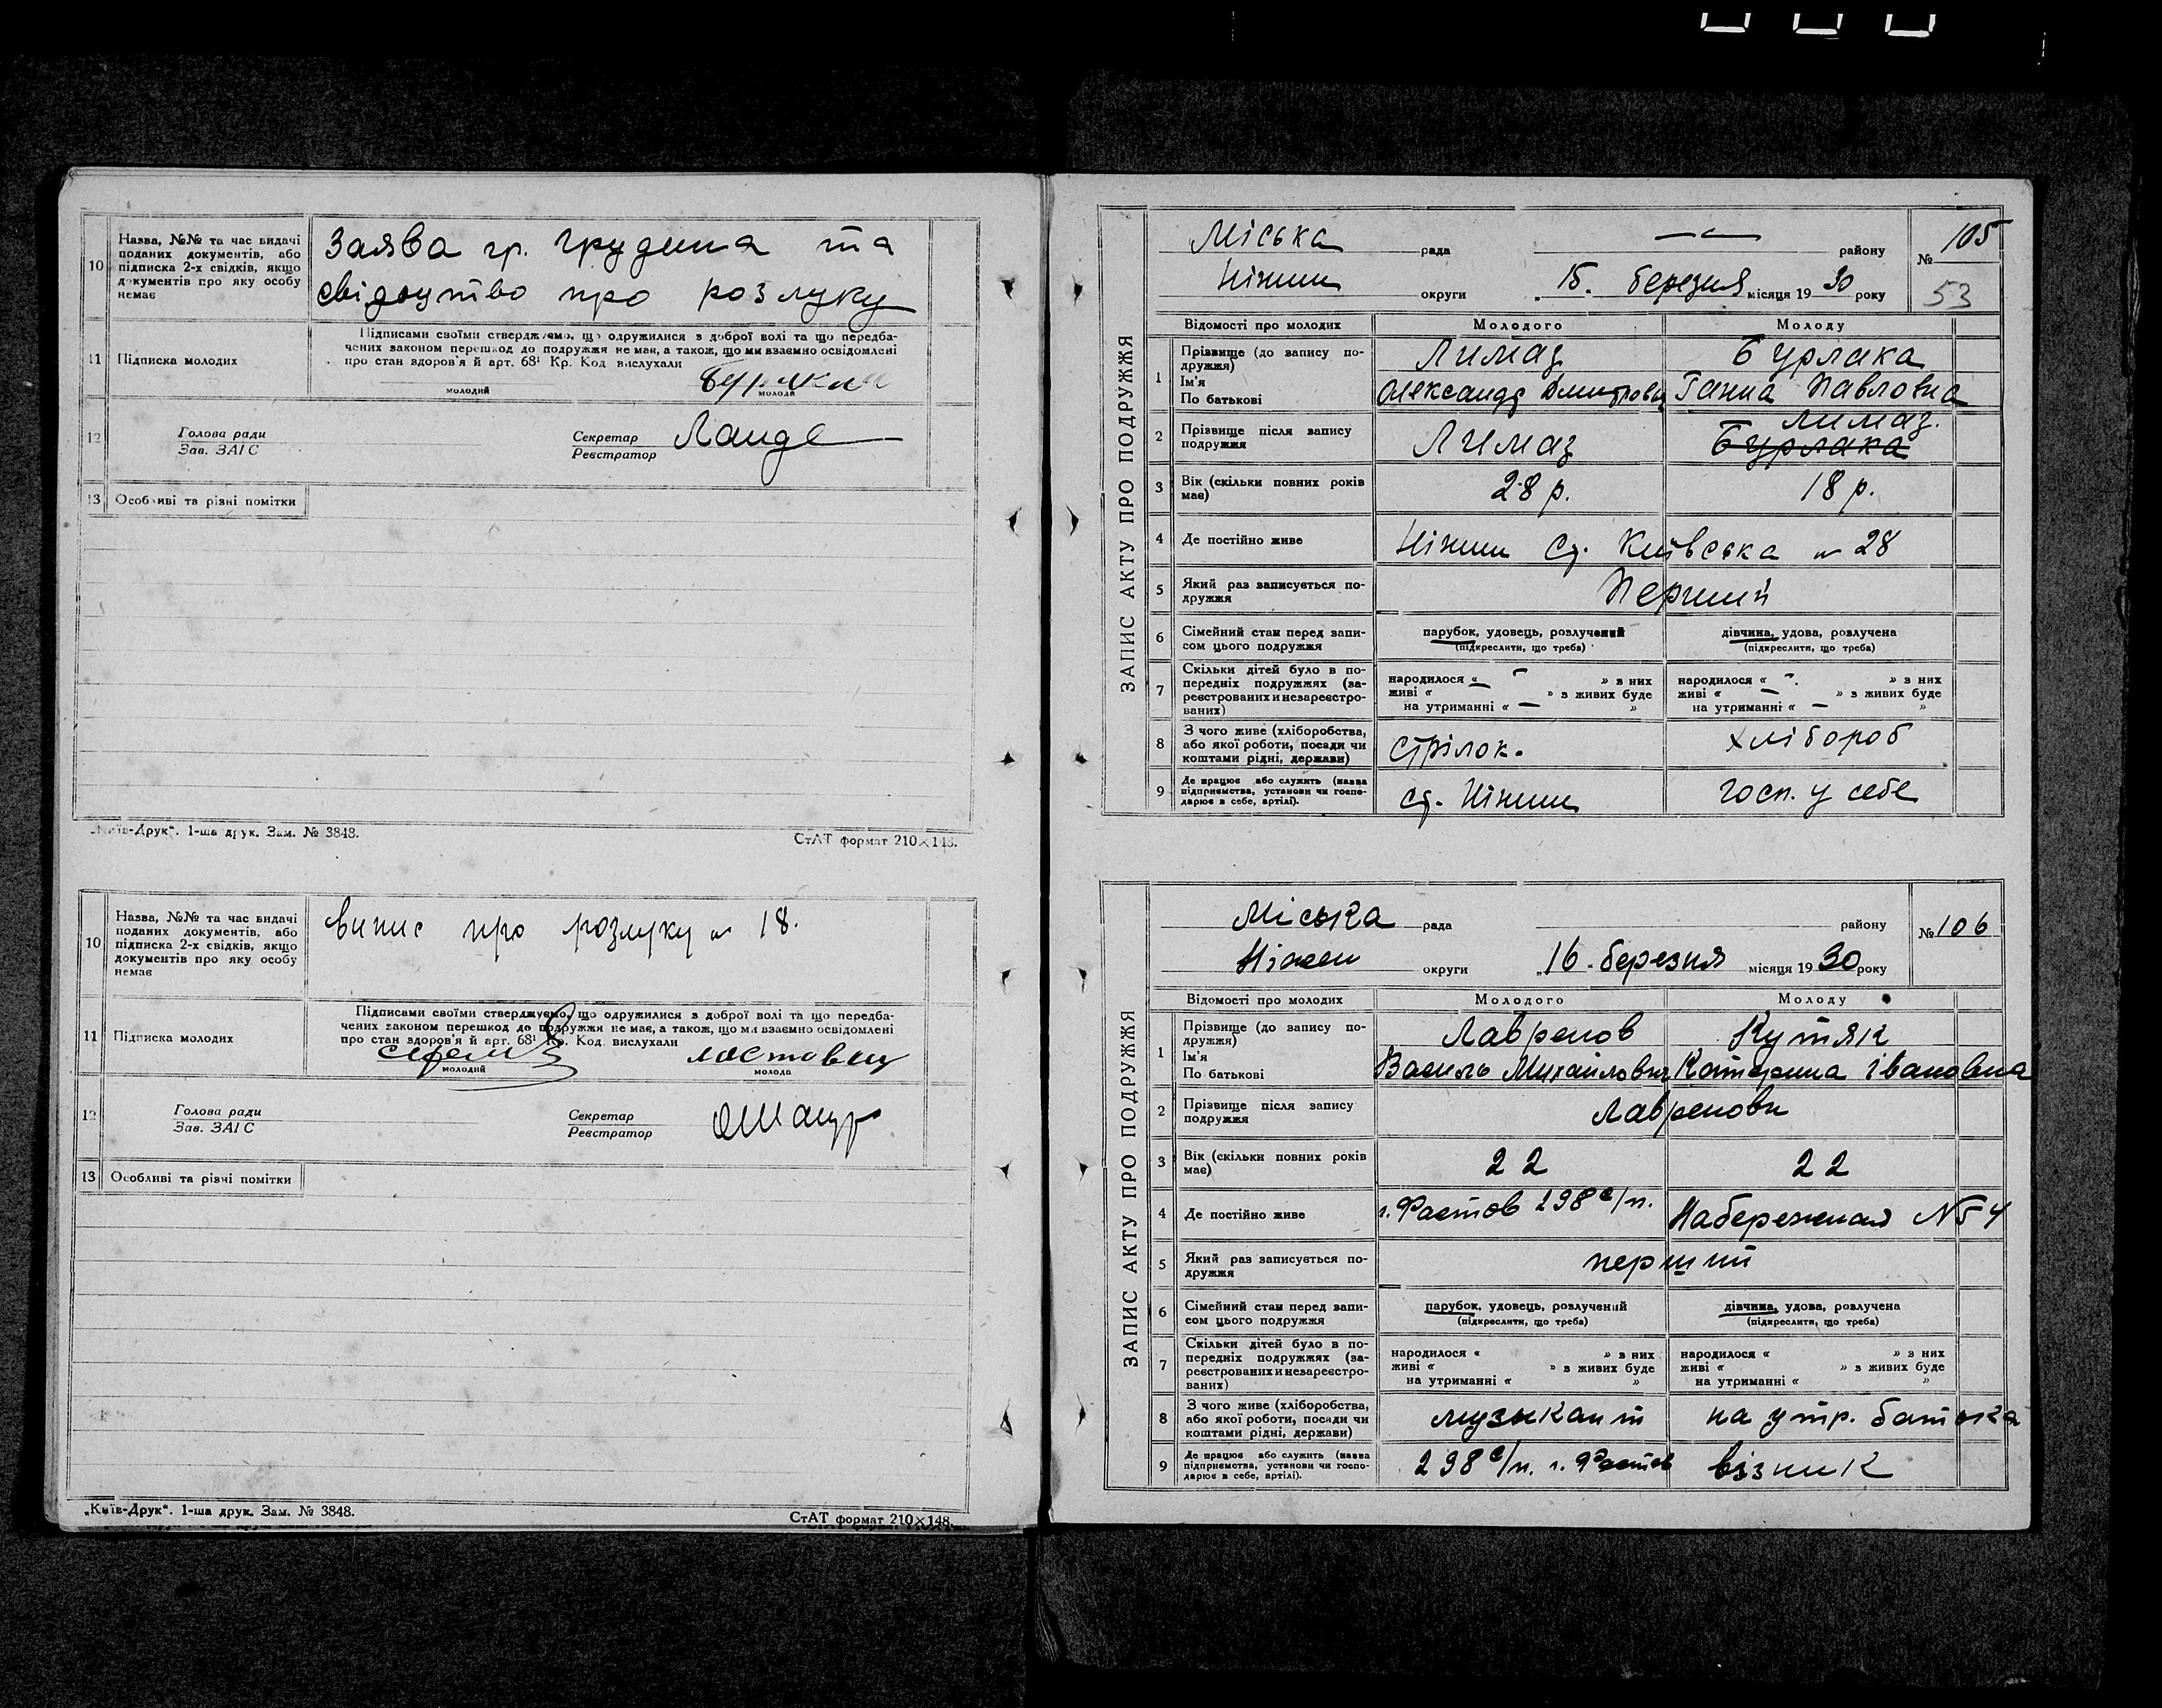 10 Назва, №№ та час видачі
поданих документів, або
підписка 2-х свідків, якщо
документів про яку особу
немає
Заява гр. Грудина та
свідоцтво про розлуку
11 Підписка молодих
Підписами своїми стверджуємо, що одружилися з доброї волі та що передба-
чених законом перешкод до подружжя не має, а також, що ми взаємно освідомлені
про стан здоров'я й арт. 68¹ Кр. Код вислухали
молодий
молода
12 Голова ради
Зав. ЗАГС
Секретар
Реєстратор
Ланде
13 Особливі та різні помітки
„Київ-Друк“. 1-ша друк. Зам. № 3848.
СтАТ формат 210×148.
10 Назва, №№ та час видачі
поданих документів, або
підписка 2-х свідків, якщо
документів про яку особу
немає
випис про розлуку № 18.
11 Підписка молодих
Підписами своїми стверджуємо, що одружилися з доброї волі та що передба-
чених законом перешкод до подружжя не має, а також, що ми взаємно освідомлені
про стан здоров'я й арт. 68¹ Кр. Код. вислухали
молодий
молода
12 Голова ради
Зав. ЗАГС
Секретар
Реєстратор
13 Особливі та різні помітки
„Київ-Друк“. 1-ша друк. Зам. № 3848.
СтАТ формат 210×148.
ЗАПИС АКТУ ПРО ПОДРУЖЖЯ
Міська рада — „ — району № 105
Ніжин округи „15. березня місяця 1930 року 53
Відомості про молодих Молодого Молоду
1 Прізвище (до запису по-
дружжя)
Ім'я
По батькові
Лимаз Бурлака
Олександр Дмитрович Ганна Павловна
2 Прізвище після запису
подружжя
Лимаз Лимаз.
Бурлака
3 Вік (скільки повних років
має)
28 р. 18 р.
4 Де постійно живе Ніжин Ст. Київська № 28
5 Який раз записується по-
дружжя
Перший
6 Сімейний стан перед запи-
сом цього подружжя
парубок, удовець, розлучений
(підкреслити, що треба)
дівчина, удова, розлучена
(підкреслити, що треба)
7 Скільки дітей було в по-
передніх подружжях (за-
реєстрованих и незареєстро-
ваних)
народилося « — » з них
живі « — » з живих буде
на утриманні « — »
народилося « — » з них
живі « — » з живих буде
на утриманні « — »
8 З чого живе (хліборобства,
або якої роботи, посади чи
коштами рідні, держави)
Стрілок. хлібороб
9 Де працює або служить (назва
підприємства, установи чи госпо-
дарює в себе, артілі).
ст. Ніжин госп. у себе
ЗАПИС АКТУ ПРО ПОДРУЖЖЯ
Міська рада району № 106
Ніжен округи „16 „ березня місяця 1930 року
Відомості про молодих Молодого Молоду
1 Прізвище (до запису по-
дружжя)
Ім'я
По батькові
Лавренов Кутяк
Василь Михайлович Катерина Івановна
2 Прізвище після запису
подружжя
Лавренови
3 Вік (скільки повних років
має)
22 22
4 Де постійно живе г. Фастов 298 с/п. Набережная № 54
5 Який раз записується по-
дружжя
перший
6 Сімейний стан перед запи-
сом цього подружжя
парубок, удовець, розлучений
(підкреслити, що треба)
дівчина, удова, розлучена
(підкреслити, що треба)
7 Скільки дітей було в по-
передніх подружжях (за-
реєстрованих и незареєстро-
ваних)
народилося « » з них
живі « » з живих буде
на утриманні « »
народилося « » з них
живі « » з живих буде
на утриманні « »
8 З чого живе (хліборобства,
або якої роботи, посади чи
коштами рідні, держави)
музыкант на утр. батька
9 Де працює або служить (назва
підприємства, установи чи госпо-
дарює в себе, артілі).
298 с/п. г. Фастов візник